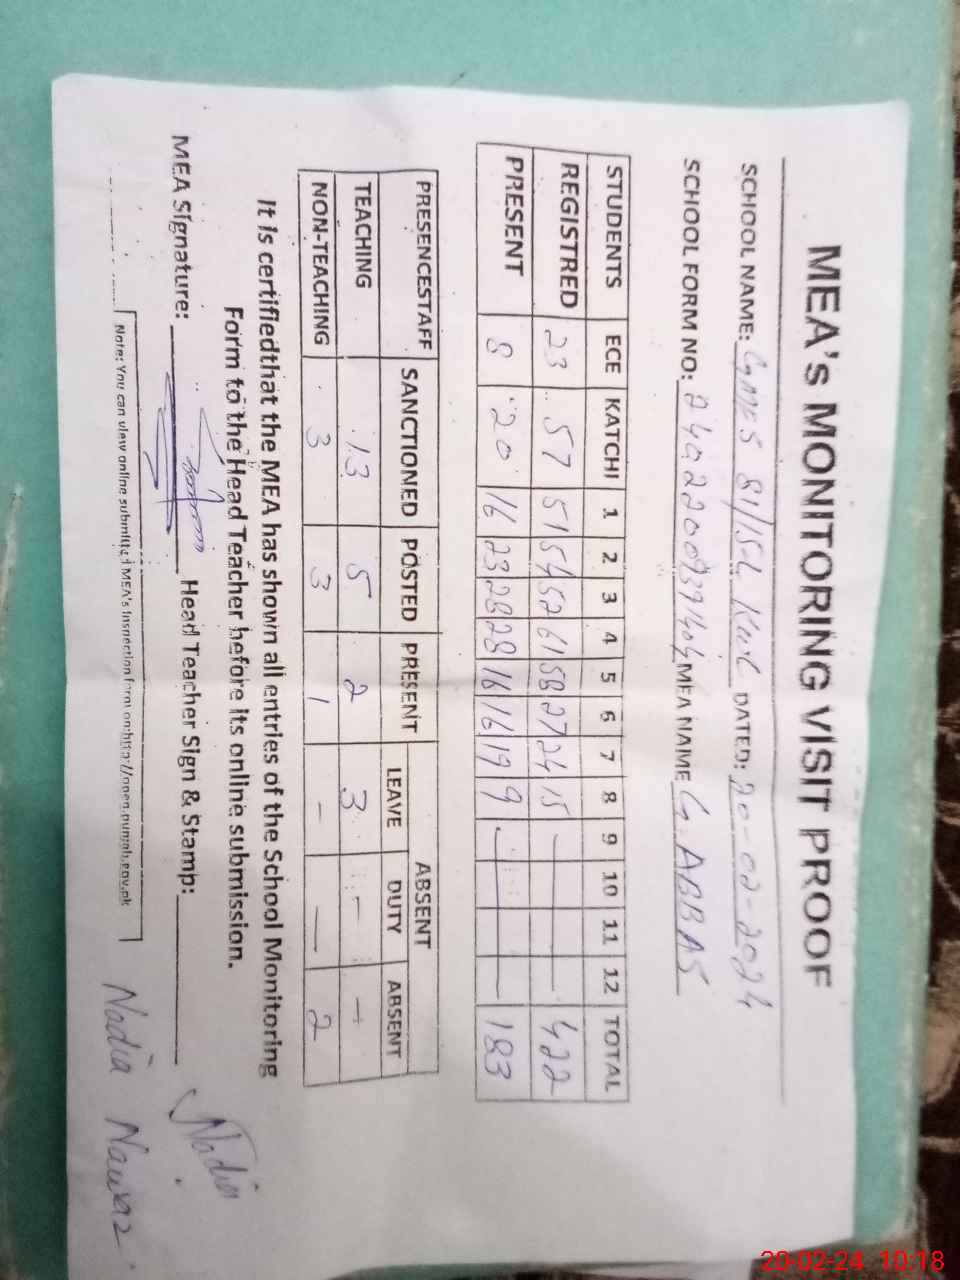 MEA'S MONITORING VISIT PROOF
SCHOOL NAME: GMES 81/15-L DATED: 20-02-2024
SCHOOL FORM NO: MEA NAME G. ABBAS
STUDENTS ECE KATCHI 1 2 3 4 5 6 7 8 9 10 11 12 TOTAL
REGISTRED 23 57 51 54 52 61 58 27 24 15 — — — — 422
PRESENT 8 20 16 23 28 28 16 16 19 9 — — — — 183
PRESENCESTAFF SANCTIONED POSTED PRESENT ABSENT
LEAVE DUTY ABSENT
TEACHING 13 5 2 3 - -
NON-TEACHING 3 3 1 - — 2
It is certifiedthat the MEA has shown all entries of the School Monitoring
Form to the Head Teacher before its online submission.
MEA Signature: Head Teacher Sign & Stamp: Nadia
Note: You can view online submitted MEA's Inspection form on http://open.punjab.gov.pk
Nadia Nawaz
20-02-24 10:18